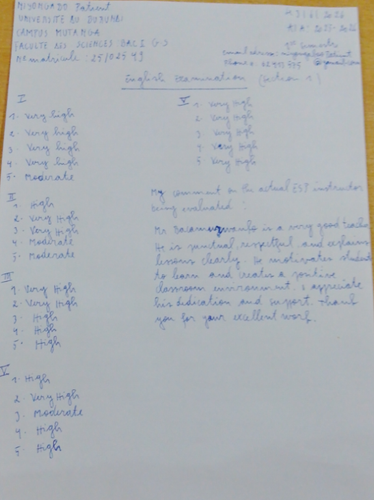 UNIVERSITE DU BURUNDI
CAMPUS MUTANGA
FACULTE DES SCIENCES BAC I G.S
No matricule : 25/02549
A.A : 2025-2026
English Examination (section 1)
I
1. Very high
2. Very high
3. Very high
4. Very high
5. Moderate
II
1. High
2. Very High
3. Very High
4. Moderate
5. Moderate
III
1. Very High
2. Very High
3. High
4. High
5. High
V
1. High
2. Very High
3. Moderate
4. High
5. High
V
1. Very High
2. Very High
3. Very High
4. Very High
5. Very High
My comment on the actual EST instructor
being evaluated :
Mr is a very good teacher
He is punctual, respectful and explains
lessons clearly. He motivates students
to learn and creates a positive
classroom environment. I appreciate
his dedication and support. Thank
you for your excellent work.